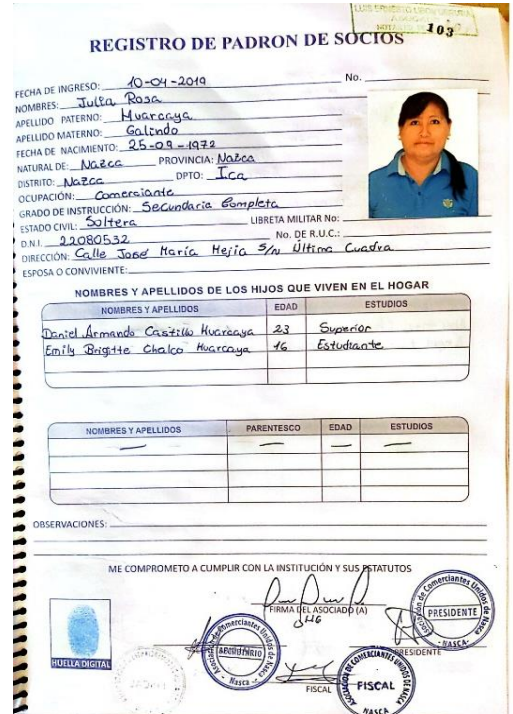 LUIS ERNESTO
103
REGISTRO DE PADRON DE SOCIOS
FECHA DE INGRESO: 10-04-2019 No.
NOMBRES: Julia Rosa
APELLIDO PATERNO: Huarcaya
APELLIDO MATERNO: Galindo
FECHA DE NACIMIENTO: 25-09-1972
NATURAL DE: Nazca PROVINCIA: Nazca
DISTRITO: Nazca DPTO: Ica
OCUPACIÓN: Comerciante
GRADO DE INSTRUCCIÓN: Secundaria Completa
ESTADO CIVIL: Soltera LIBRETA MILITAR No:
D.N.I. 22080532 No. DE R.U.C.:
DIRECCIÓN: Calle José María Mejia S/N Última Cuadra
ESPOSA O CONVIVIENTE:
NOMBRES Y APELLIDOS DE LOS HIJOS QUE VIVEN EN EL HOGAR
NOMBRES Y APELLIDOS EDAD ESTUDIOS
Daniel Armando Castillo Huarcaya 23 Superior
Emily Brigitte Chalco Huarcaya 16 Estudiante
NOMBRES Y APELLIDOS PARENTESCO EDAD ESTUDIOS
— — — —
OBSERVACIONES:
ME COMPROMETO A CUMPLIR CON LA INSTITUCIÓN Y SUS ESTATUTOS
FIRMA DEL ASOCIADO (A)
Asociación de Comerciantes Unidos de Nasca
PRESIDENTE
- NASCA -
PRESIDENTE
HUELLA DIGITAL
Comerciantes Unidos de Nasca
SECRETARIO
Nasca
FISCAL
ASOCIACIÓN DE COMERCIANTES UNIDOS DE NASCA
FISCAL
NASCA